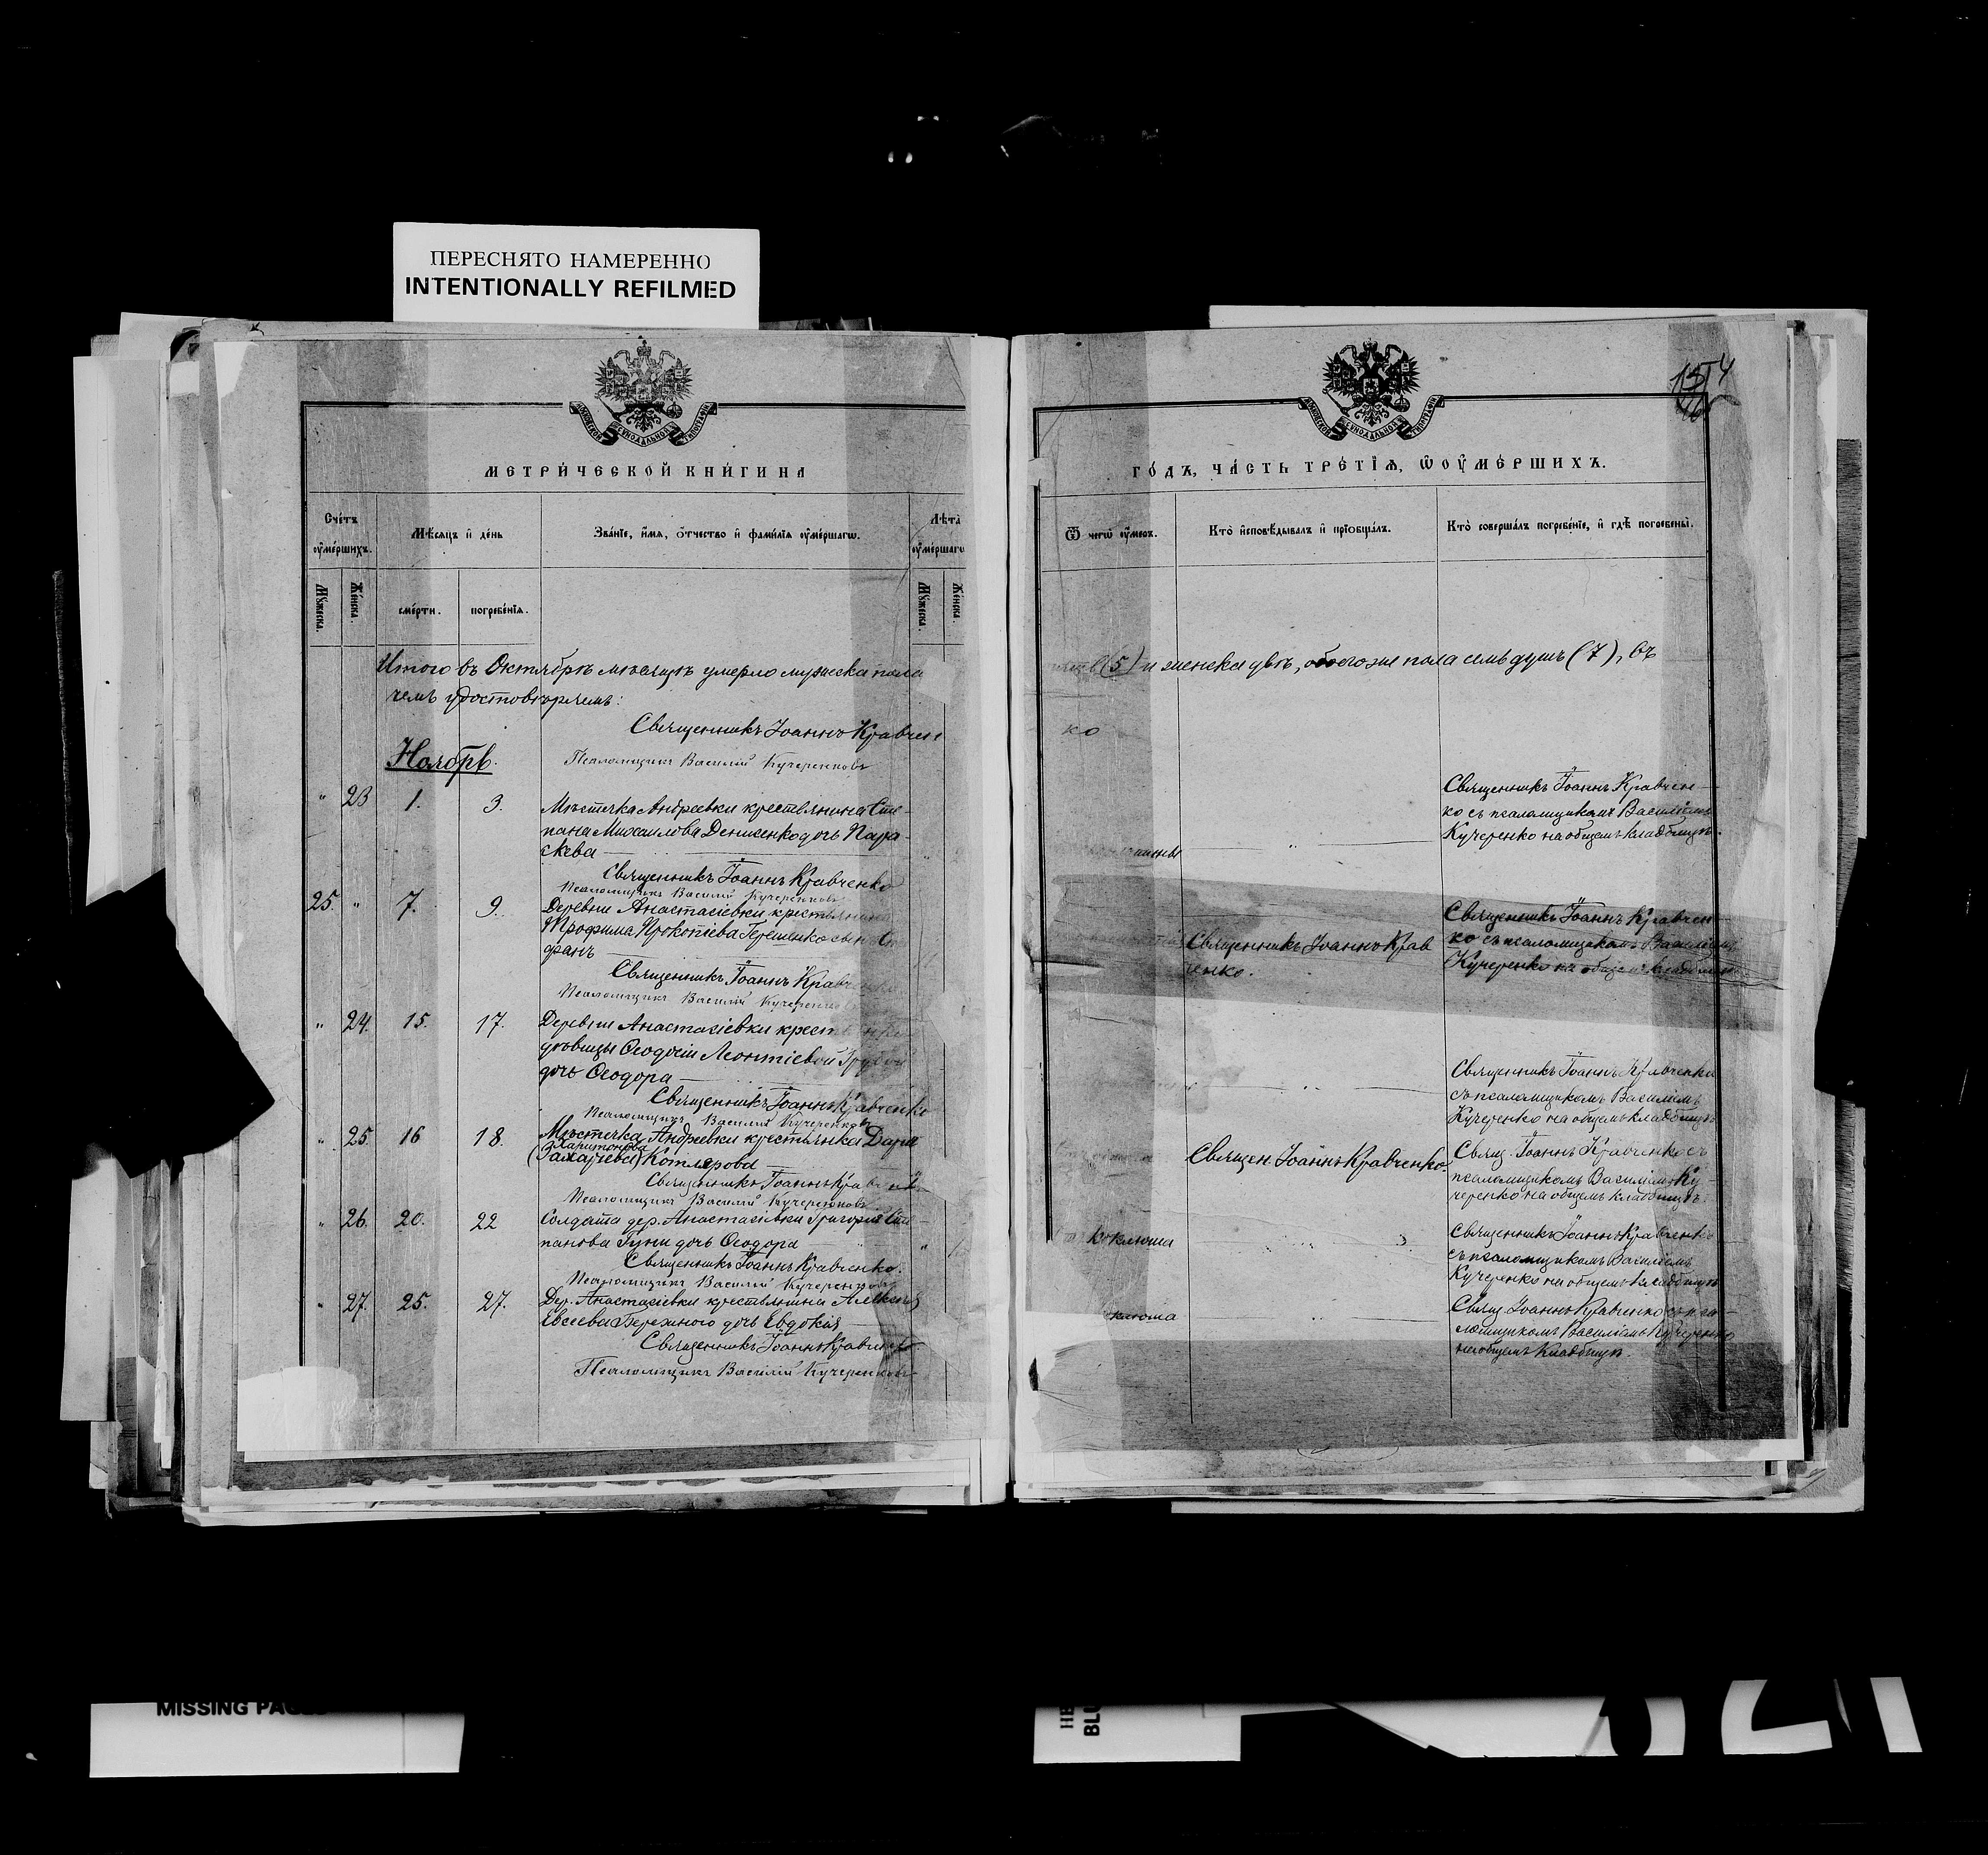 ПЕРЕСНЯТО НАМЕРЕННО
INTENTIONALLY REFILMED
МЕТРИ́ЧЕСКОЙ КНИ́ГИ НА
Сче́тъ ᲂу҆ме́ршихъ.
Мѣ́сяцъ и҆ де́нь
Зва́нїе, и҆́мя, ѻ҆́тчество и҆ фами́лїя ᲂу҆ме́ршагѡ.
Лѣта̀ ᲂу҆ме́ршагѡ
Мꙋ́жеска.
Же́нска.
сме́рти.
погребе́нїя.
Мꙋ́жеска.
Же́нска.
Итого въ Октябрѣ мѣсяцѣ умерло мужеска пола
чемъ удостовѣряемъ:
Священникъ Іоаннъ Кравчен
Псаломщикъ Василій Кучеренковъ
Ноябрь.
" 23 1. 3. Мѣстечка Андреевки крестьянина Сте-
пана Михаилова Денисенко дочь Пара-
скева
Священникъ Іоаннъ Кравченко
Псаломщикъ Василій Кучеренковъ
25. " 7. 9. Деревни Анастасіевки крестьянина
Трофима Прокопіева сынъ
фанъ
Священникъ Іоаннъ Кравченко
Псаломщикъ Василій Кучеренковъ
" 24. 15. 17. Деревни Анастасіевки крест
дѣвицы Ѳеодосіи Леонтіевой
дочь Ѳеодора
Священникъ Іоаннъ Кравченко
Псаломщикъ Василій Кучеренковъ
" 25. 16 18. Мѣстечка Андреевки крестьянка Дарія
Харитонова
(Захаріева) Котлярова
Священникъ Іоаннъ
Псаломщикъ Василій Кучеренковъ
" 26. 20. 22 Солдата дер. Анастасіевки Григорія Сте-
панова дочь Ѳеодора "
Священникъ Іоаннъ Кравченко.
Псаломщикъ Василій Кучеренковъ
" 27. 25. 27. Дер. Анастасіевки крестьянина Алексѣя
Евсеева дочь Евдокія
Священникъ Іоаннъ Кравченко
Псаломщикъ Василій Кучеренковъ
ГО́ДЪ, ЧА́СТЬ ТРЕ́ТЇѦ, Ѡ҆ ОУ҆МЕ́РШИХЪ.
Ѿ чегѡ̀ ᲂу҆́меръ.
Кто̀ и҆сповѣ́дывалъ и҆ прїѡбща́лъ.
Кто̀ соверша́лъ погребе́нїе, и҆ гдѣ̀ погребены̀.
(5) и женска двѣ, обоего же пола семь душъ (7), въ
ко
Священникъ Іоаннъ Кравчен-
ко съ псаломщикомъ Василіемъ
Кучеренко на общемъ кладбищѣ.
Священникъ Іоаннъ Крав
ченко.
Священникъ Іоаннъ Кравчен-
ко съ псаломщикомъ Василіемъ
Кучеренко на общемъ кладбищѣ
Священникъ Іоаннъ Кравченко
съ псаломщикомъ Василіемъ
Кучеренко на общемъ кладбищѣ
Священ. Іоаннъ Кравченко.
Свящ. Іоаннъ Кравченко съ
псаломщикомъ Василіемъ Ку-
черенко на общемъ кладбищѣ.
коклюша
Священникъ Іоаннъ Кравченко
съ псаломщикомъ Василіемъ
Кучеренко на общемъ кладбищѣ
клюша
Свящ. Іоаннъ Кравченко съ пса-
ломщикомъ Василіемъ Кучеренко
на общемъ кладбищѣ.
MISSING PAGES